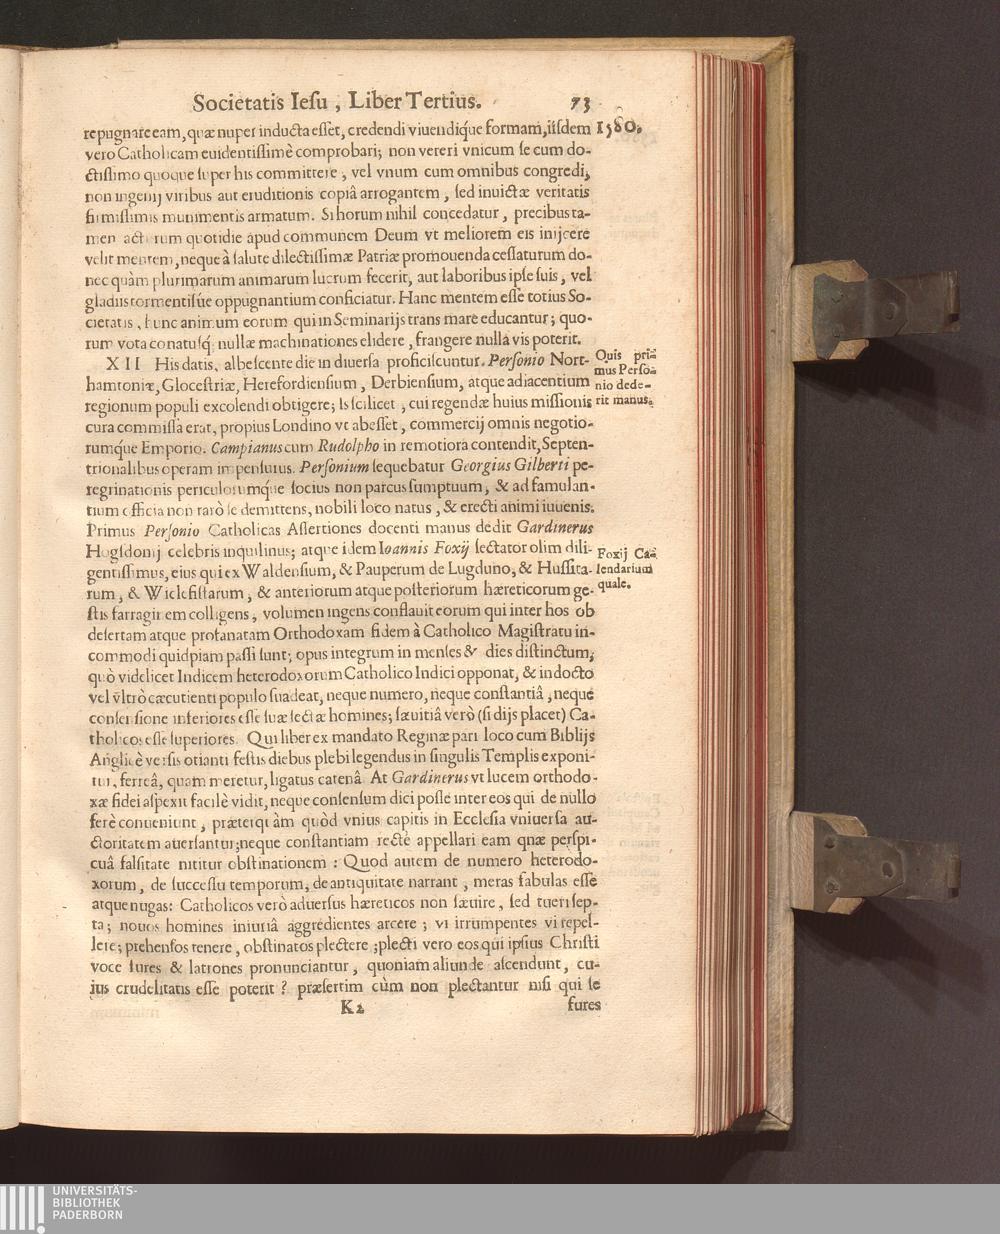 Societatis Iesu, Liber Tertius. 73
1580.
repugnare eam, quæ nuper inducta esset, credendi viuendiq́ue formam, iisdem
vero Catholicam euidentissimè comprobari; non vereri vnicum se cum do-
ctissimo quoque super his committere, vel vnum cum omnibus congredi,
non ingenij viribus aut eruditionis copiâ arrogantem, sed inuictæ veritatis
firmissimis munimentis armatum. Si horum nihil concedatur, precibus ta-
men acturum quotidie apud communem Deum vt meliorem eis inijcere
velit mentem, neque à salute dilectissimæ Patriæ promouenda cessaturum do-
nec quàm plurimarum animarum lucrum fecerit, aut laboribus ipse suis, vel
gladiis tormentisúe oppugnantium conficiatur. Hanc mentem esse totius So-
cietatis, hunc animum eorum qui in Seminarijs trans mare educantur; quo-
rum vota conatusq́; nullæ machinationes elidere, frangere nulla vis poterit.
XII His datis, albescente die in diuersa proficiscuntur. Personio Nort-
hamtoniæ, Glocestriæ, Herefordiensium, Derbiensium, atque adiacentium
regionum populi excolendi obtigere; Is scilicet, cui regendæ huius missionis
cura commissa erat, propius Londino vt abesset, commercij omnis negotio-
rumq́ue Emporio. Campianus cum Rudolpho in remotiora contendit, Septen-
trionalibus operam impensurus. Personium sequebatur Georgius Gilberti pe-
regrinationis periculorumq́ue socius non parcus sumptuum, & ad famulan-
tium officia non rarò se demittens, nobili loco natus, & erecti animi iuuenis.
Primus Personio Catholicas Assertiones docenti manus dedit Gardinerus
Hogsdonij celebris inquilinus; atque idem Ioannis Foxij sectator olim dili-
gentissimus, eius qui ex Waldensium, & Pauperum de Lugduno, & Hussita-
rum, & Wiclefistarum, & anteriorum atque posteriorum hæreticorum ge-
stis farraginem colligens, volumen ingens conflauit eorum qui inter hos ob
desertam atque profanatam Orthodoxam fidem à Catholico Magistratu in-
commodi quidpiam passi sunt; opus integrum in menses & dies distinctum;
quò videlicet Indicem heterodoxorum Catholico Indici opponat, & indocto
vel vltrò cæcutienti populo suadeat, neque numero, neque constantiâ, neque
consensione inferiores esse suæ sectæ homines; sæuitiâ verò (si dijs placet) Ca-
tholicos esse superiores. Qui liber ex mandato Reginæ pari loco cum Biblijs
Anglicè versis otianti festis diebus plebi legendus in singulis Templis exponi-
tur, ferreâ, quam meretur, ligatus catenâ. At Gardinerus vt lucem orthodo-
xæ fidei aspexit facilè vidit, neque consensum dici posse inter eos qui de nullo
ferè conueniunt, præterquàm quòd vnius capitis in Ecclesia vniuersa au-
ctoritatem auersantur; neque constantiam rectè appellari eam qnæ perspi-
cuâ falsitate nititur obstinationem: Quod autem de numero heterodo-
xorum, de successu temporum, de antiquitate narrant, meras fabulas esse
atque nugas: Catholicos verò aduersus hæreticos non sæuire, sed tueri sep-
ta; nouos homines iniuriâ aggredientes arcere; vi irrumpentes vi repel-
lere; prehensos tenere, obstinatos plectere; plecti vero eos qui ipsius Christi
voce fures & latrones pronunciantur, quoniam aliunde ascendunt, cu-
ius crudelitatis esse poterit? præsertim cùm non plectantur nisi qui se
K2 fures
Quis pri-
mus Perso-
nio dede-
rit manus.
Foxij Ca-
lendarium
quale.
UNIVERSITÄTS-
BIBLIOTHEK
PADERBORN